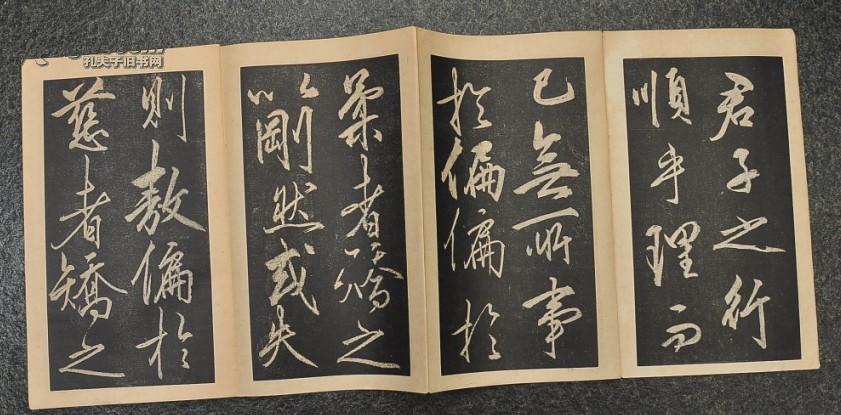 君子之行
順乎理而
已無所事
於偏偏於
柔者矯之
以剛然或失
則敖偏於
慈者矯之
孔夫子旧书网